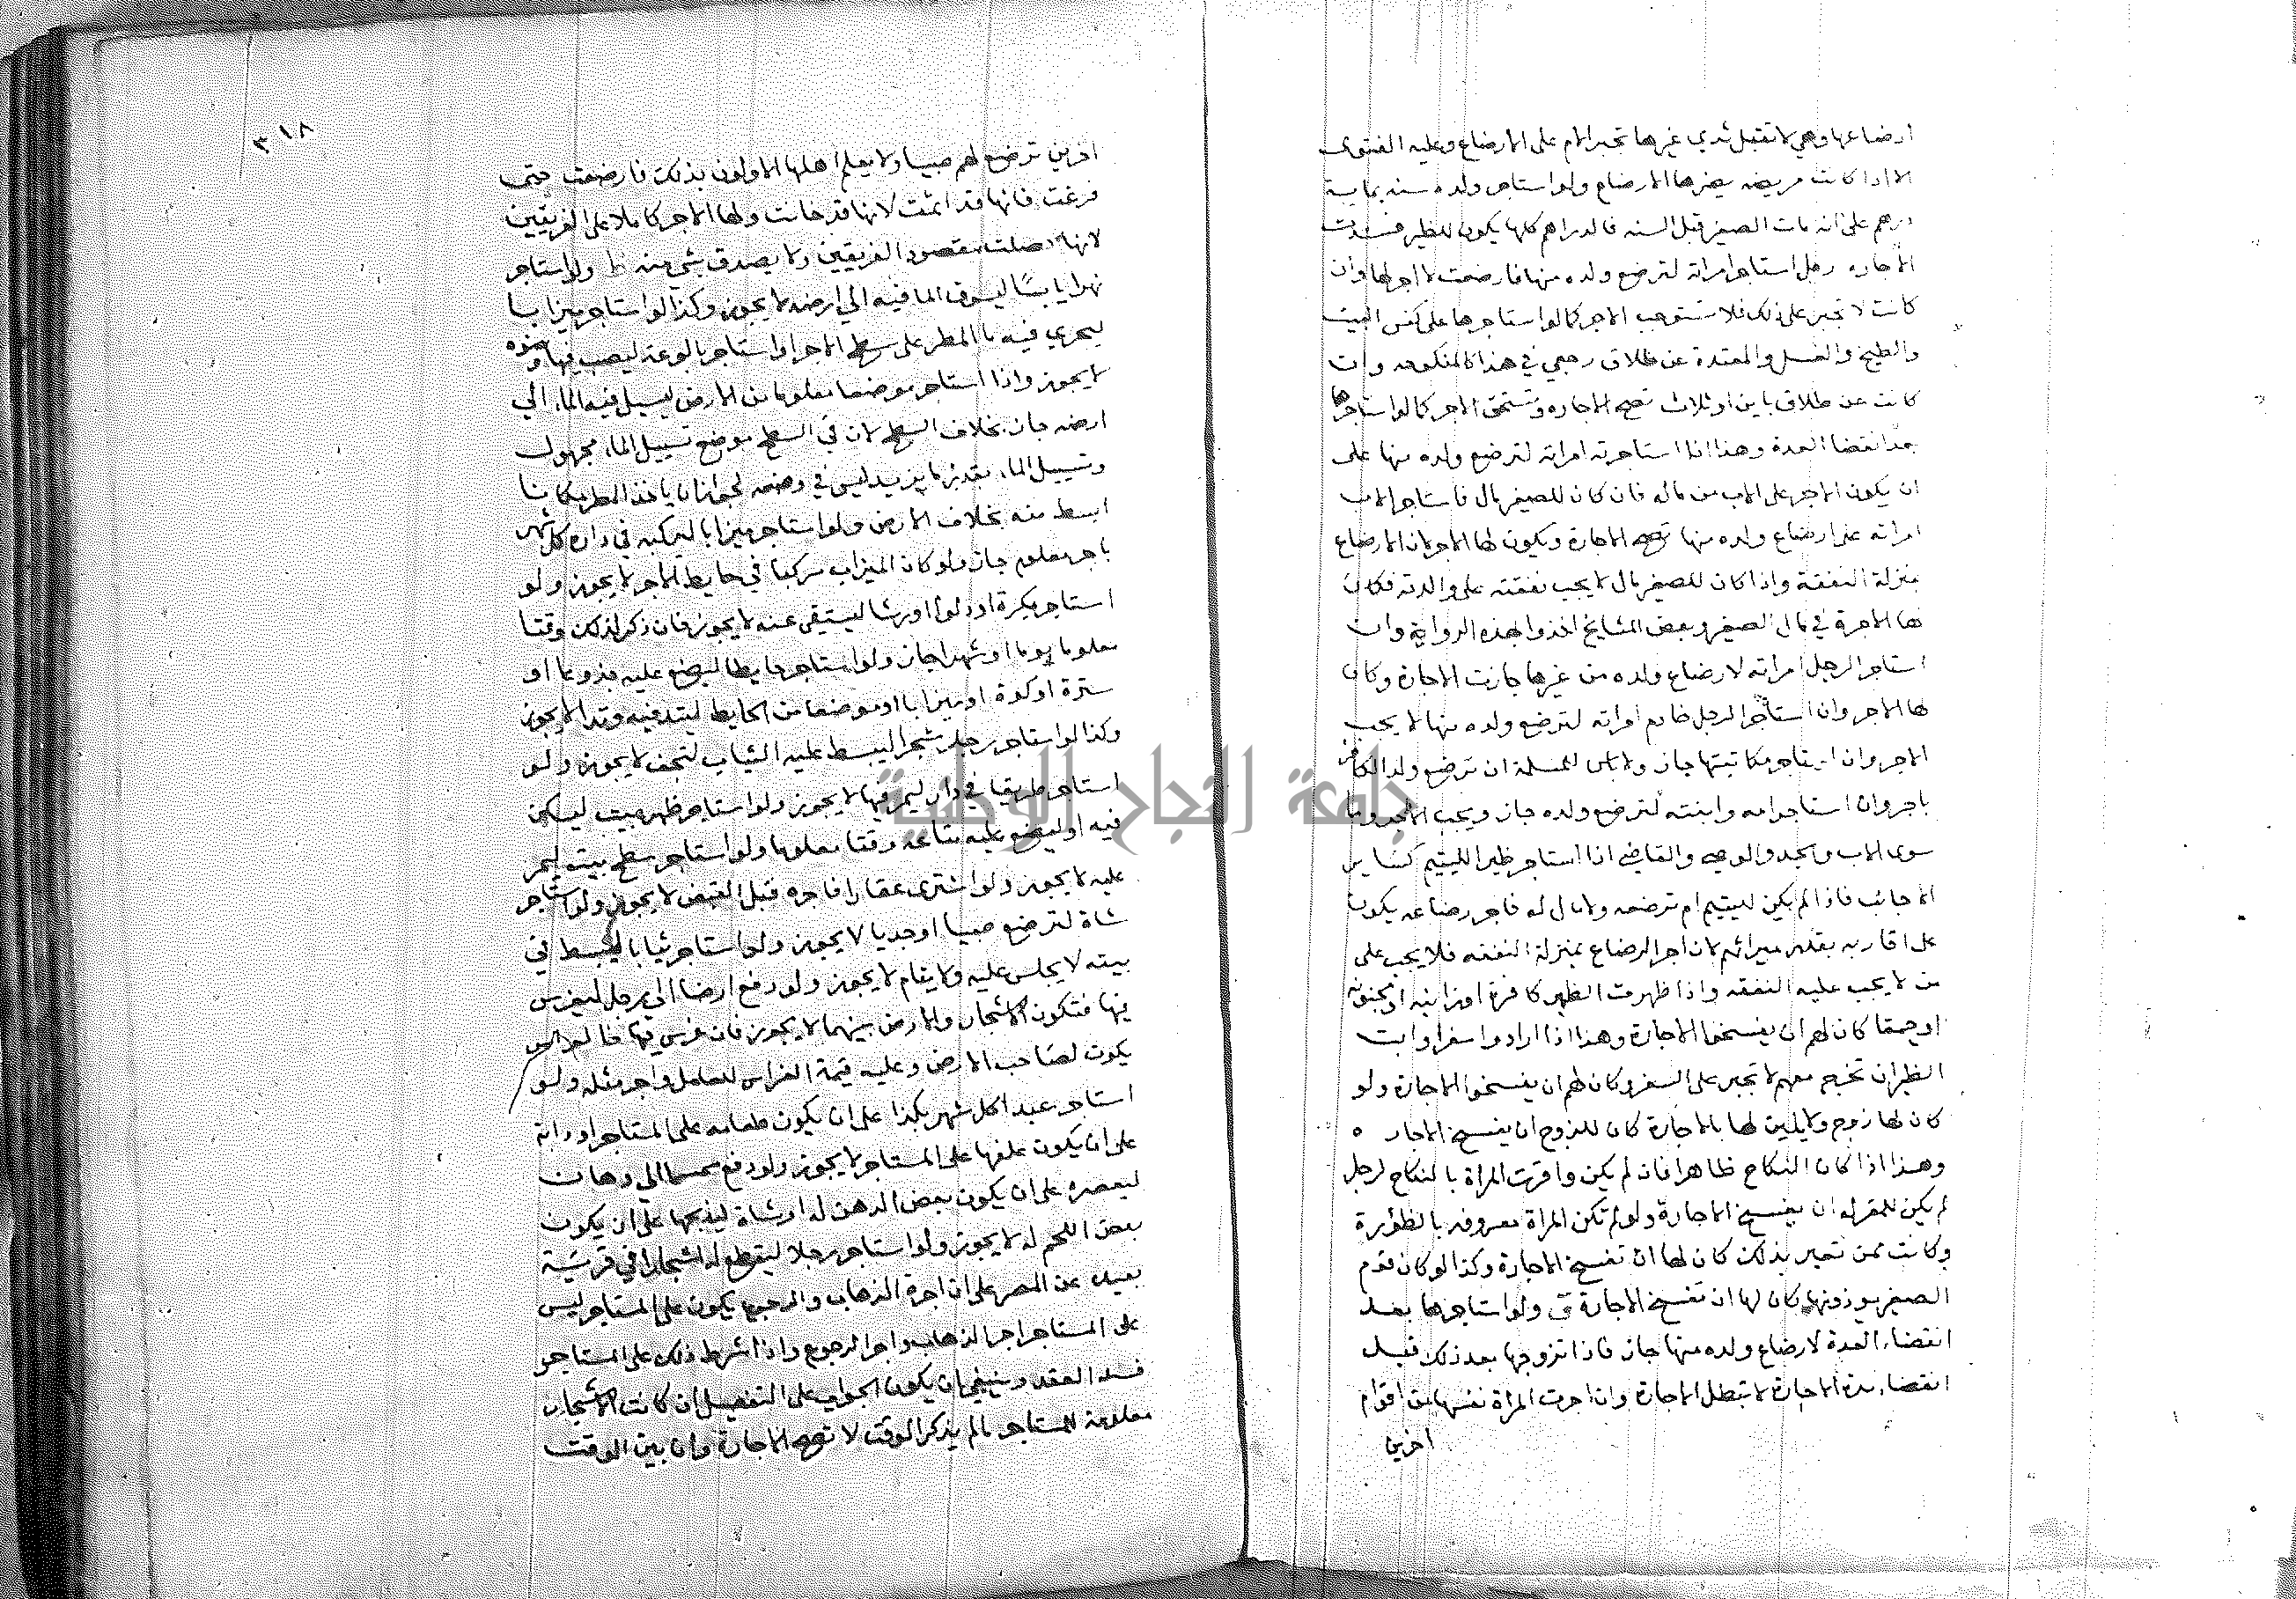 ارضاعها وهي لا تقبل ثدي غيرها تجبر الام على الارضاع وعليه الفتوى
الا اذا كانت مريضه يضرها الارضاع ولو استاجر ولده سنه بماية
درهم على انه مات الصغير قبل السنه فالدراهم كلها يكون للظير فسدت
الاجاره رجل استاجر امراته لترضع ولده منها فارضعت لا اجر لها وان
كانت لا تجبر على ذلك فلا تستوجب الاجر كما لو استاجرها على كنس البيت
والطبخ والغسل والمعتدة عن طلاق رجعي في هذا كالمنكوحه وان
كانت عن طلاق باين او ثلاث تصح الاجاره وتستحق الاجر كما لو استاجرها
بعد انقضا العدة وهذا اذا استاجرته امراته لترضع ولده منها على
ان يكون الاجر على الاب من ماله فان كان للصغير مال فاستاجر الاب
امراته على ارضاع ولده منها تصح الاجارة ويكون لها الاجر لان الارضاع
بمنزلة النفقة واذا كان للصغير مال لا يجب نفقته على والدته فكان
لها الاجرة في مال الصغير وبعض المشايخ اخذوا بهذه الرواية وان
استاجر الرجل امراته لارضاع ولده من غيرها جازت الاجارة وكان
لها الاجر وان استاجر الرجل خادم امراته لترضع ولده منها لا يجب
الاجر وان استاجر مكاتبتها جاز ولا باس للمسلمة ان ترضع ولد الكافر
باجر وان استاجر امه وابنته لترضع ولده جاز ويجب الاجر وما
سوى الاب والجد والوصي والقاضي اذا استاجر ظيرا لليتيم كساير
الاجانب فاذا لم يكن لليتيم ام ترضعه ولا مال له فاجر رضاعه يكون
على اقاربه بقدر ميراثهم لان اجر الرضاع بمنزلة النفقه فلا يجب على
من لا يجب عليه النفقه واذا ظهرت الظير كافرة او زانيه او مجنونه
او حمقا كان لهم ان يفسخوا الاجارة وهذا اذا ارادوا سفرا وابت
الظير ان تخرج معهم لا تجبر على السفر وكان لهم ان يفسخوا الاجارة ولو
كان لها زوج ولا يلين لها بالاجارة كان للزوج ان يفسخ الاجاره
وهذا اذا كان النكاح ظاهرا فان لم يكن واقرت المراة بالنكاح لرجل
لم يكن للمقر له ان يفسخ الاجارة ولو لم تكن المراة معروفه بالظؤرة
وكانت ممن تعير بذلك كان لها ان تفسخ الاجارة وكذا لو كان قوم
الصغير يوذونها كان لها ان تفسخ الاجارة ولو استاجرها بعد
انقضاء العدة لارضاع ولده منها جاز فاذا تزوجها بعد ذلك قبل
انقضاء مدة الاجارة لا تبطل الاجارة وان اجرت المراة نفسها من اقوام
اخرين
٣١٨
اخرين ترضع لهم صبيا ولا يعلم اهلها الاولون بذلك فارضعت حتى
فرغت فانها قد اثمت لانها قد خانت ولها الاجر كاملا على الفريقين
لانها حصلت مقصود الفريقين ولا يصدق بشي منه ط ولو استاجر
نهرا يابسا ليسوق الما فيه الي ارضه لا يجوز وكذا لو استاجر ميزابا
ليجري فيه ما المطر على سطح الاجر او استاجر بالوعة ليصب فيها وضوه
لا يجوز واذا استاجر موضعا معلوما من الارض ليسيل فيه الماء الي
ارضه جاز بخلاف السطح لان في السطح موضع تسييل الماء مجهول
وتسييل الماء بقدر ما يريد ليس في وضعه لجواز ان ياخذ المطر مكانا
ابسط منه بخلاف الارض ولو استاجر ميزابا ليركبه في داره كل شهر
باجر معلوم جاز ولو كان الميزاب مركبا في حايط الاجر لا يجوز ولو
استاجر بكرة او دلوا او رشا ليستقى عنه لا يجوز فان ذكر لذلك وقتا
معلوما يوما او شهرا جاز ولو استاجر حايطا ليضع عليه جذوعا او
سترة او كوة او ميزابا او موضعا من الحايط ليتد فيه وتدا لا يجوز
وكذا لو استاجر رجل شجرا ليبسط عليه الثياب لتجف لا يجوز ولو
استاجر طريقا في دار ليمر فيها لا يجوز ولو استاجر ظهر بيت ليسكن
فيه او ليضع عليه متاعه وقتا معلوما ولو استاجر سطح بيته ليمر
عليه لا يجوز ولو اشترى عقارا فاجره قبل القبض لا يجوز ولو استاجر
شاة لترضع صبيا او جديا لا يجوز ولو استاجر ثيابا ليبسط في
بيته لا يجلس عليه ولا ينام لا يجوز ولو دفع ارضا الي رجل ليغرس
فيها فتكون الاشجار والارض بينهما لا يجوز فان غرس فيها فالغراس
يكون لصاحب الارض وعليه قيمة الغراس للعامل واجر مثله ولو
استاجر عبدا كل شهر بكذا على ان يكون طعامه على المستاجر او دابة
على ان يكون علفها على المستاجر لا يجوز ولو دفع سمسما الي دهان
ليعصره على ان يكون بعض الدهن له او شاة ليذبحها على ان يكون
بعض اللحم له لا يجوز ولو استاجر رجلا ليقطع له اشجارا في قرية
بعيدة عن المصر على ان اجرة الذهاب والرجوع يكون على المستاجر ليس
على المستاجر اجر الذهاب واجر الرجوع واذا شرط ذلك على المستاجر
فسد العقد وينبغي ان يكون الجواب على التفصيل ان كانت الاشجار
معلومة للمستاجر ما لم يذكر الوقت لا تصح الاجارة وان بين الوقت
جامعة النجاح الوطنية